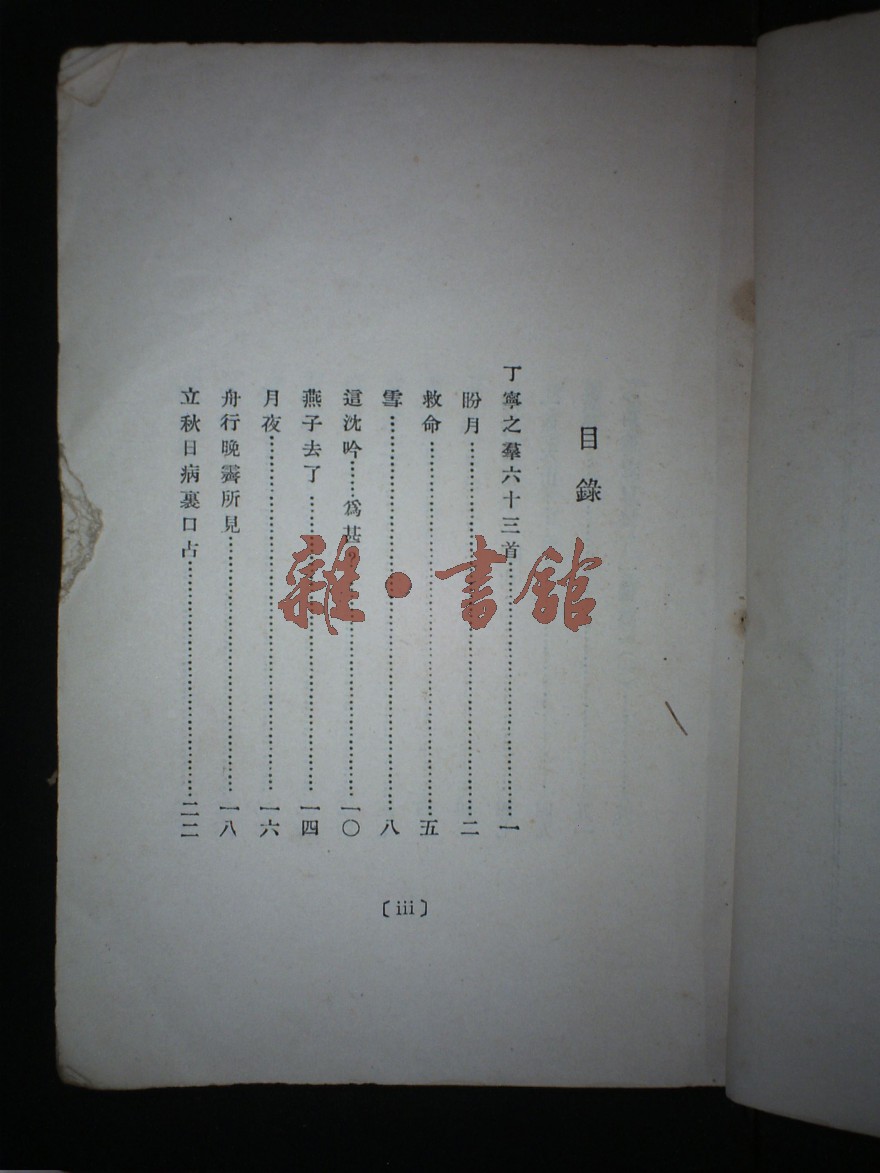 目錄
丁寧之羣六十三首……一
盼月……二
救命……五
雪……八
這沈吟……爲甚？……一〇
燕子去了……一四
月夜……一六
舟行晚霽所見……一八
立秋日病裏口占……二二
〔iii〕
雜·書館